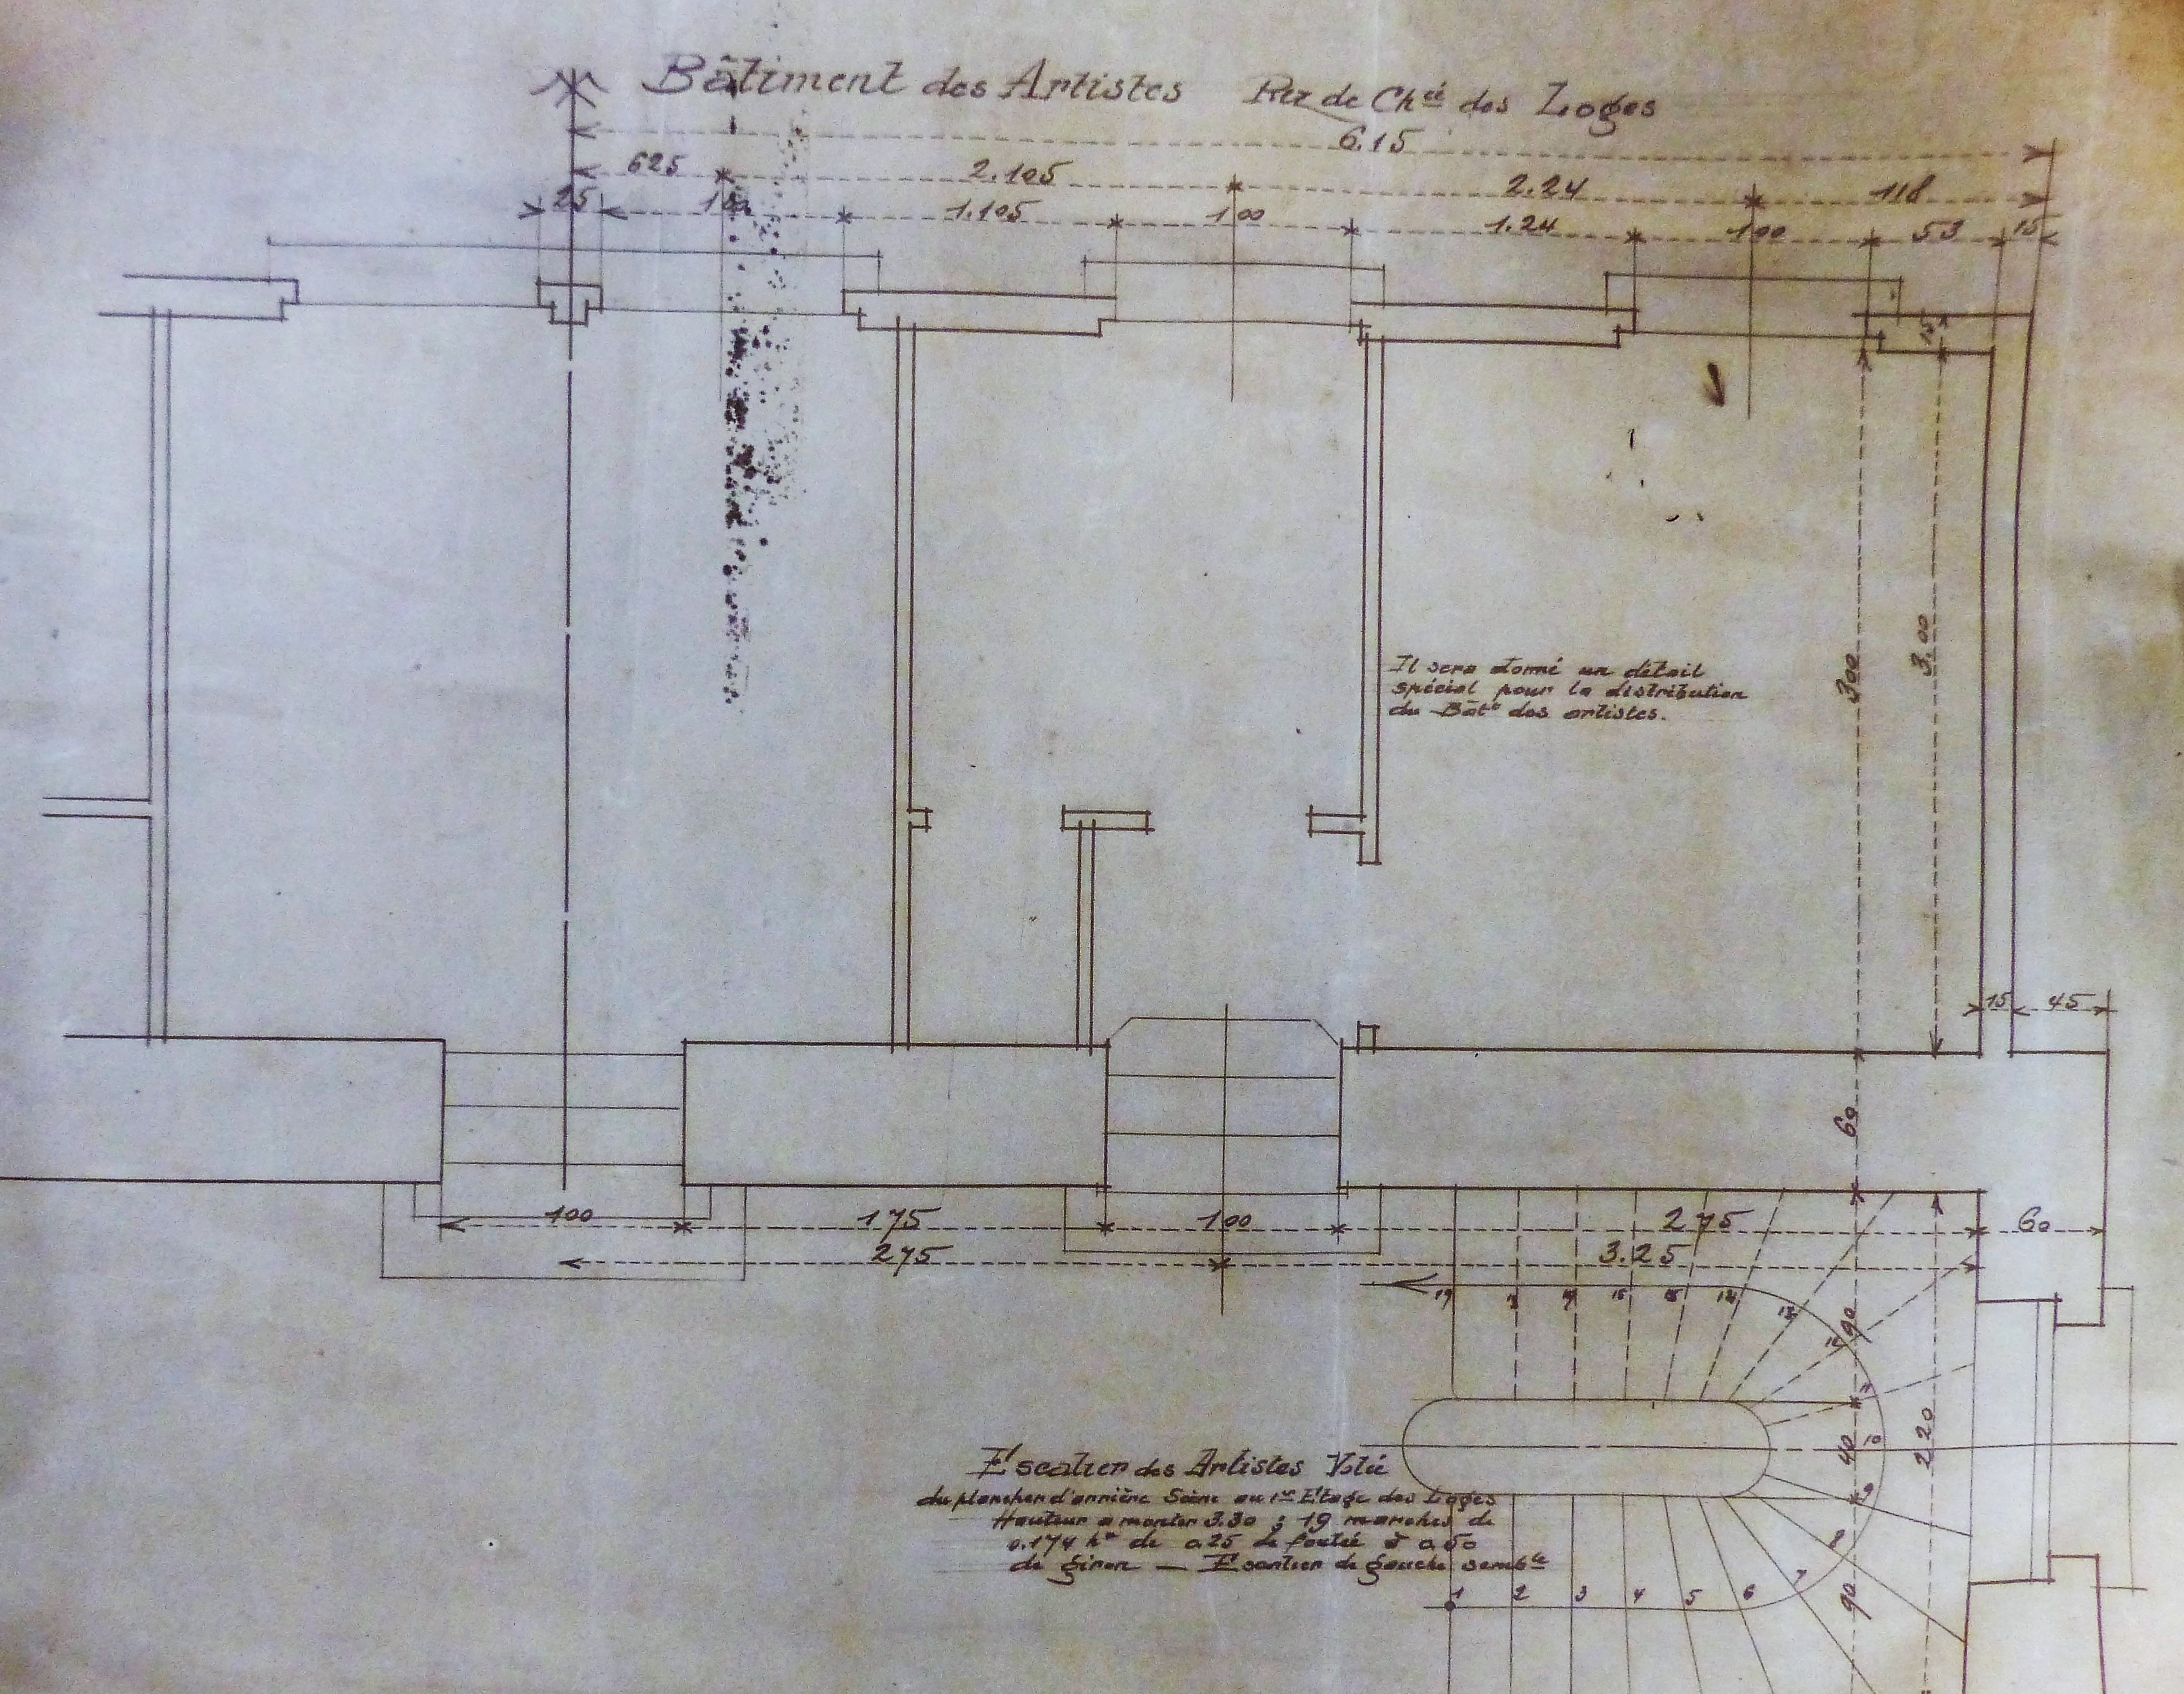 Bâtiment des Artistes Rez de Ch^ée des Loges
6.15
625 2.105 2.24 118
25 100 1.105 100 1.24 100 53 15
15
Il sera donné un détail
spécial pour la distribution
du Bât^t des artistes.
300
3.00
15 45
60
100 175 100 275 60
275 3.25
19 18 17 16 15 14 13 12 90
11
40 10 220
9
8
7
1 2 3 4 5 6 90
Escalier des Artistes
du plancher d'arrière Scène au 1^er Etage des Loges
Hauteur a monter 3.30 ; 19 marches de
0.174 h^r de 0.25 de foulée à 0.50
de giron — Escalier de gauche semb^le